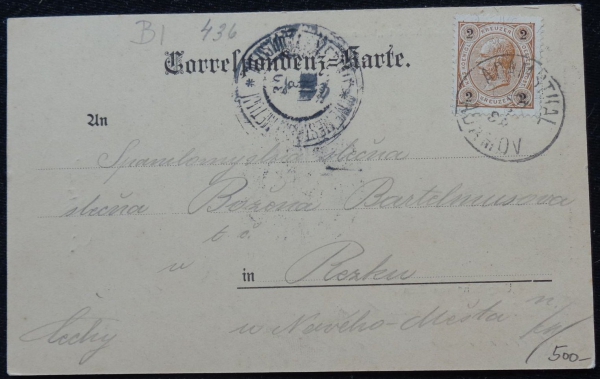 B1 436
Correspondenz-Karte.
2 KREUZER 2
2 KREUZER 2
An
Spanilomyslná slečna
slečna Božena Bartelmusova
t č.
v
in Rezku
u Nového-Města n/M
Čechy
500-